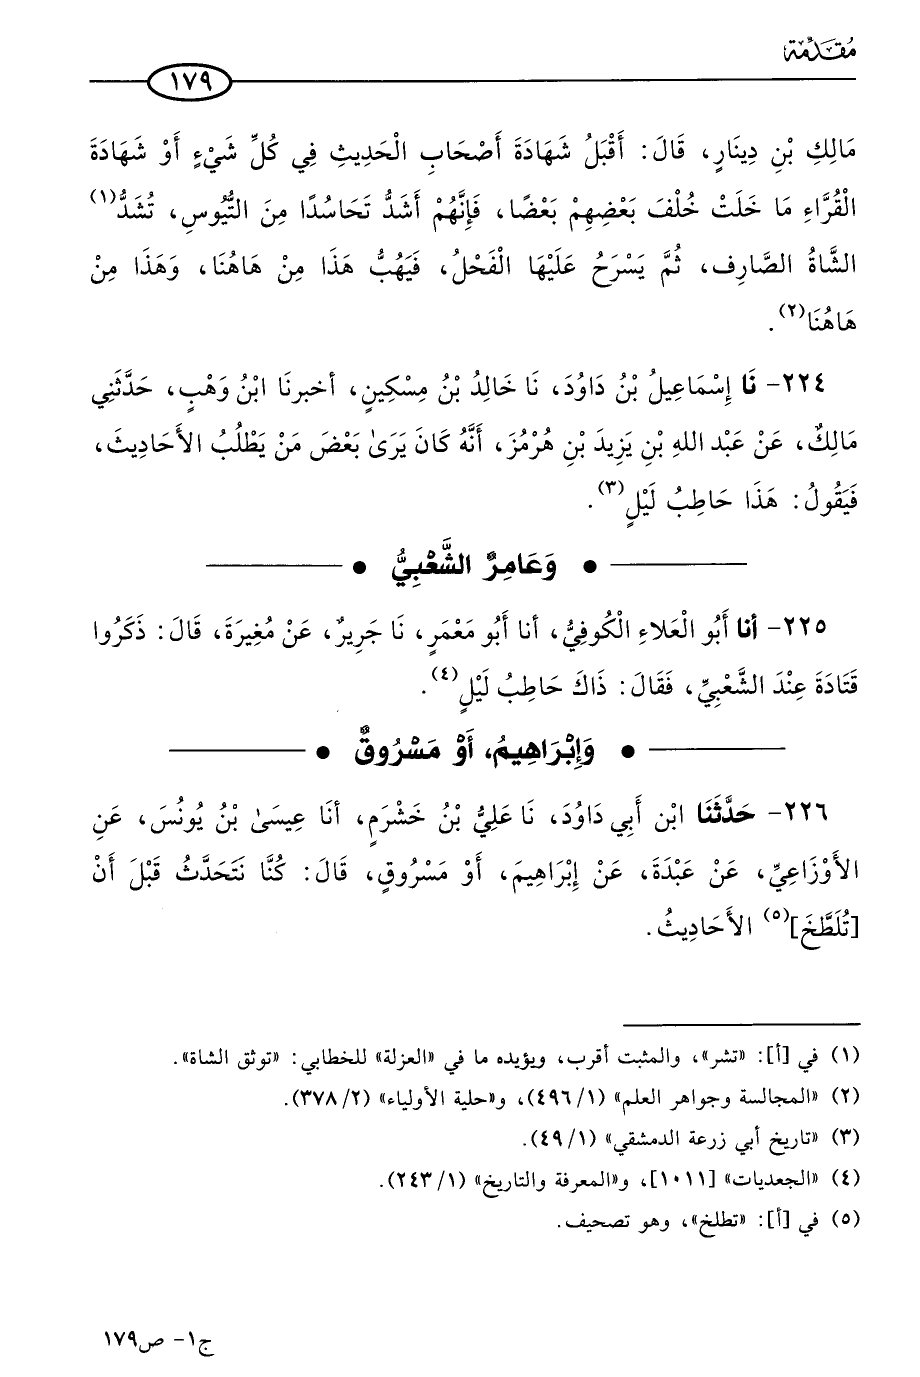 مُقَدِّمَة
١٧٩
مَالِكِ بْنِ دِينَارٍ، قَالَ: أَقْبَلُ شَهَادَةَ أَصْحَابِ الْحَدِيثِ فِي كُلِّ شَيْءٍ أَوْ شَهَادَةَ
الْقُرَّاءِ مَا خَلَتْ خُلْفَ بَعْضِهِمْ بَعْضًا، فَإِنَّهُمْ أَشَدُّ تَحَاسُدًا مِنَ التُّيُوسِ، تُشَدُّ(١)
الشَّاةُ الصَّارِف، ثُمَّ يَسْرَحُ عَلَيْهَا الْفَحْلُ، فَيَهُبُّ هَذَا مِنْ هَاهُنَا، وَهَذَا مِنْ
هَاهُنَا(٢).
٢٢٤- نَا إِسْمَاعِيلُ بْنُ دَاوُدَ، نَا خَالِدُ بْنُ مِسْكِينٍ، أخبرنَا ابْنُ وَهْبٍ، حَدَّثَنِي
مَالِكٌ، عَنْ عَبْد اللهِ بْنِ يَزِيدَ بْنِ هُرْمُزَ، أَنَّهُ كَانَ يَرَىٰ بَعْضَ مَنْ يَطْلُبُ الأَحَادِيثَ،
فَيَقُولُ: هَذَا حَاطِبُ لَيْلٍ(٣).
● وَعَامِرٌ الشَّعْبِيُّ ●
٢٢٥- أنا أَبُو الْعَلاءِ الْكُوفِيُّ، أنا أَبُو مَعْمَرٍ، نَا جَرِيرٌ، عَنْ مُغِيرَةَ، قَالَ: ذَكَرُوا
قَتَادَةَ عِنْدَ الشَّعْبِيِّ، فَقَالَ: ذَاكَ حَاطِبُ لَيْلٍ(٤).
● وَإِبْرَاهِيمُ، أَوْ مَسْرُوقٌ ●
٢٢٦- حَدَّثَنَا ابْن أَبِي دَاوُدَ، نَا عَلِيُّ بْنُ خَشْرَمٍ، أنَا عِيسَىٰ بْنُ يُونُسَ، عَنِ
الأَوْزَاعِيِّ، عَنْ عَبْدَةَ، عَنْ إِبْرَاهِيمَ، أَوْ مَسْرُوقٍ، قَالَ: كُنَّا نَتَحَدَّثُ قَبْلَ أَنْ
[تُلَطَّخَ](٥) الأَحَادِيثُ.
(١) في [أ]: «تشر»، والمثبت أقرب، ويؤيده ما في «العزلة» للخطابي: «توثق الشاة».
(٢) «المجالسة وجواهر العلم» (١/ ٤٩٦)، و«حلية الأولياء» (٢/ ٣٧٨).
(٣) «تاريخ أبي زرعة الدمشقي» (١/ ٤٩).
(٤) «الجعديات» [١٠١١]، و«المعرفة والتاريخ» (١/ ٢٤٣).
(٥) في [أ]: «تطلخ»، وهو تصحيف.
ج١- ص١٧٩